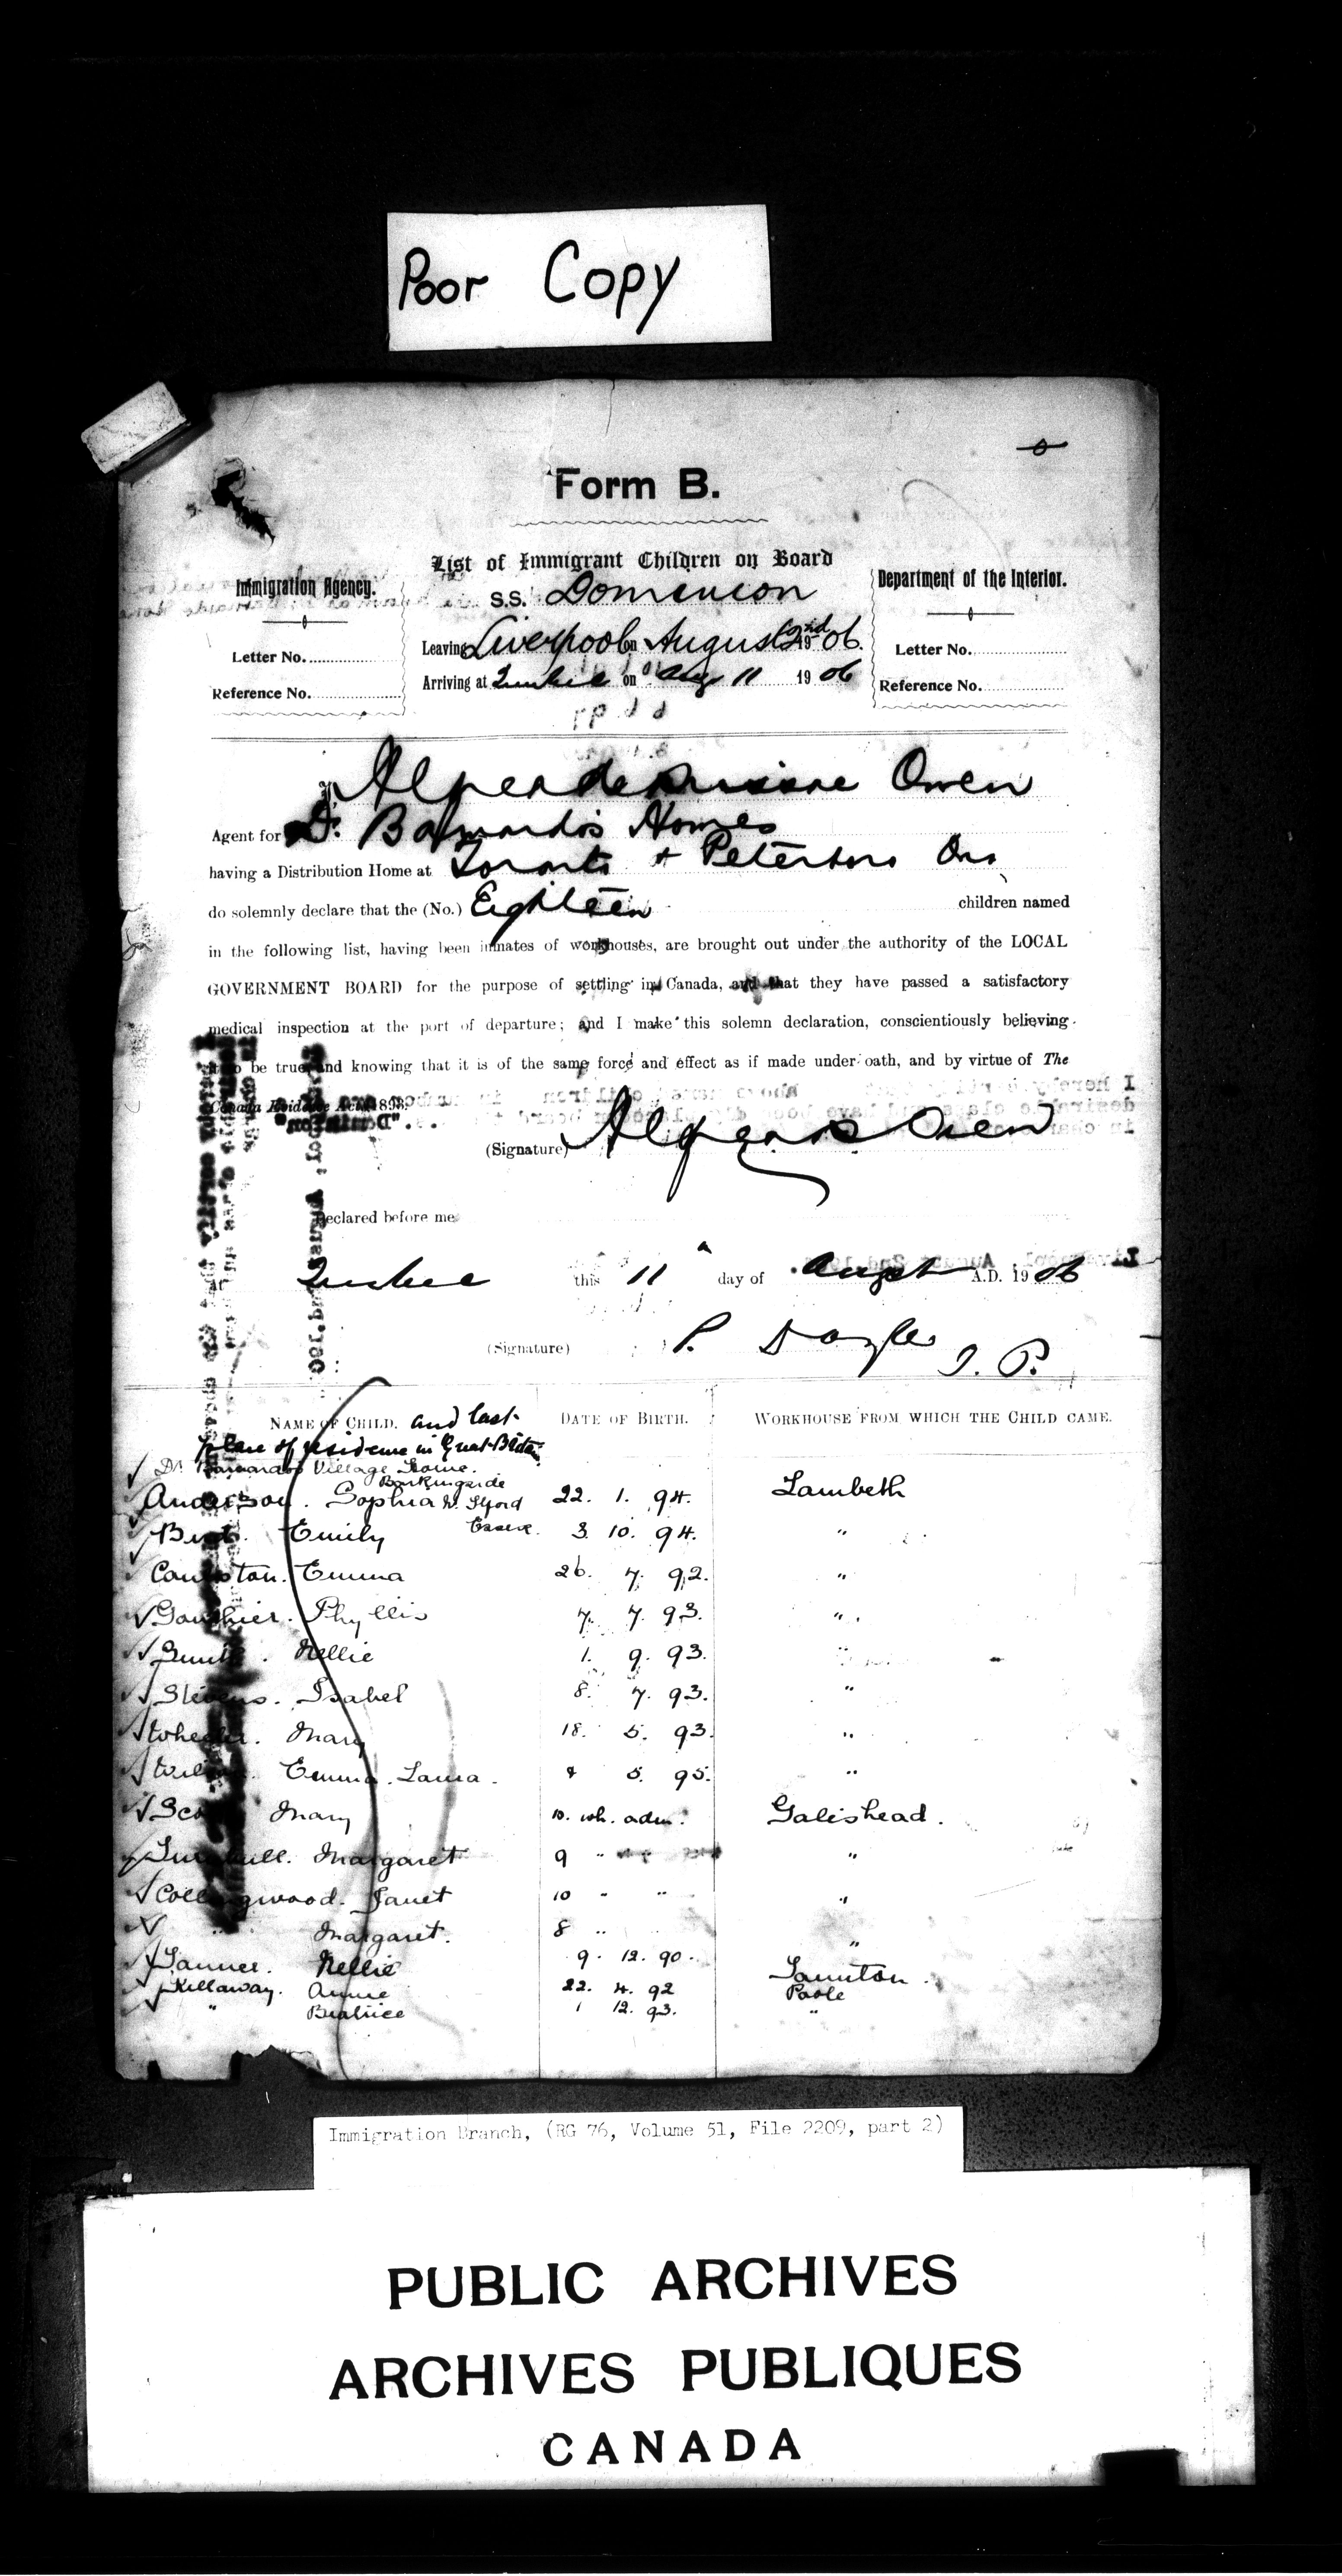 Poor Copy
Form B.
List of Immigrant Children on Board
Immigration Agency.
S.S. Dominion
Department of the Interior.
Leaving Liverpool on August 2nd 1906.
Letter No.
Letter No.
Arriving at Quebec on Aug 11 1906
Reference No.
Reference No.
I Owen
Agent for Dr. Barnardo's Homes
having a Distribution Home at Toronto + Peterboro Ont
do solemnly declare that the (No.) Eighteen children named
in the following list, having been inmates of workhouses, are brought out under the authority of the LOCAL
GOVERNMENT BOARD for the purpose of settling in Canada, and that they have passed a satisfactory
medical inspection at the port of departure; and I make this solemn declaration, conscientiously believing
it to be true and knowing that it is of the same force and effect as if made under oath, and by virtue of The
Canada Evidence Act, 1893.
(Signature) Owen
Declared before me
at Quebec this 11 day of August A.D. 1906
(Signature) P. Doyle J. P.
NAME OF CHILD. and last DATE OF BIRTH. WORKHOUSE FROM WHICH THE CHILD CAME.
place of residence in Great Britain
Dr Barnardo's Village Home.
Barkingside
Anderson. Sophia Nr. Ilford 22. 1. 94. Lambeth
Emily Essex. 3. 10. 94. "
Emma 26. 7. 92. "
Gauthier. Phyllis 7. 7. 93. "
Smith. Nellie 1. 9. 93. "
Stevens. Isabel 8. 7. 93. "
Wheeler. Mary 18. 5. 93. "
Emma Laura. 5. 95. "
Scott Mary 10. wh. adm. Gateshead.
Turnbull. Margaret 9 " "
Collingwood. Janet 10 " " "
" Margaret. 8 " "
Tanner. Nellie 9. 12. 90. Taunton.
Kellaway. Annie 22. 4. 92 Poole
" Beatrice 1 12. 93. "
Immigration Branch, (RG 76, Volume 51, File 2209, part 2)
PUBLIC ARCHIVES
ARCHIVES PUBLIQUES
CANADA